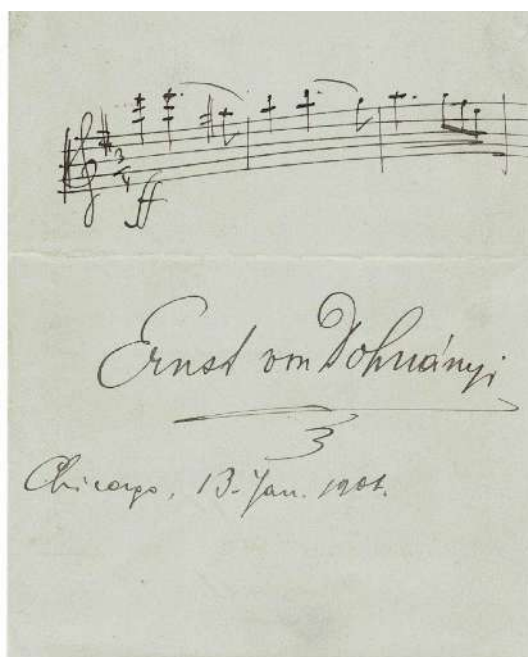 3
4
ff
Ernst von Dohnányi
Chicago, 13. Jan. 1901.